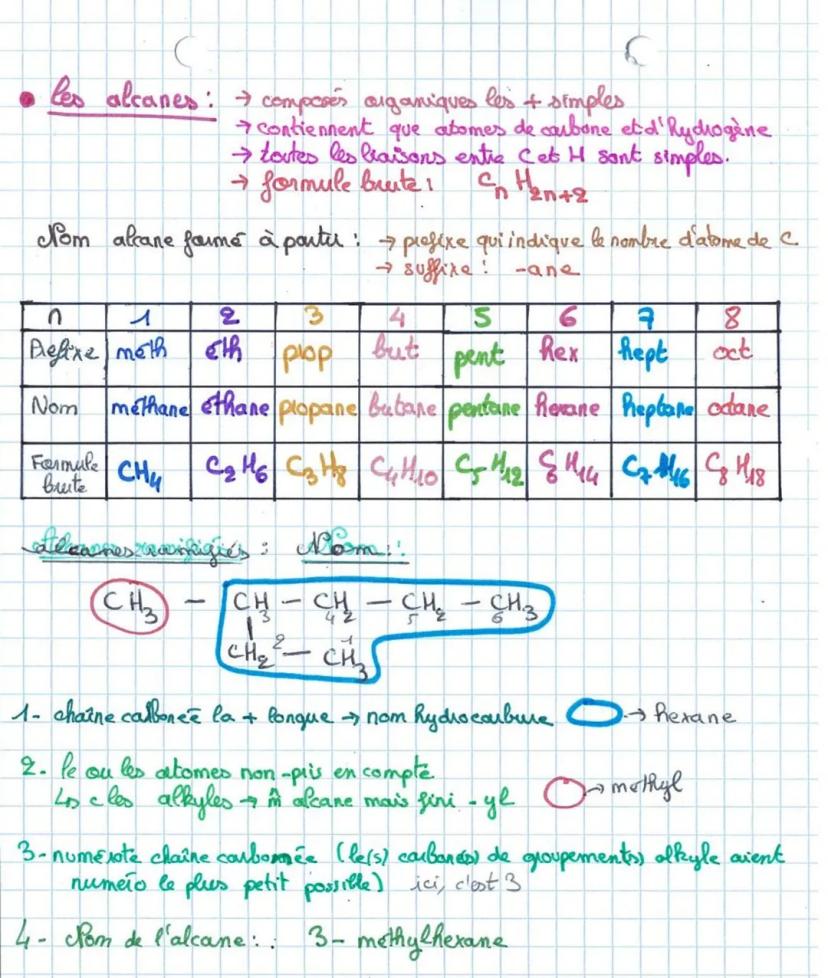 • les alcanes : → composés organiques les + simples
→ contiennent que atomes de carbone et d'hydrogène
→ toutes les liaisons entre C et H sont simples.
→ formule brute : CnH2n+2
Nom alcane formé à partir : → prefixe qui indique le nombre d'atome de C
→ suffixe : -ane
n 1 2 3 4 5 6 7 8
Prefixe méth éth prop but pent hex hept oct
Nom méthane éthane propane butane pentane hexane heptane octane
Formule brute CH4 C2H6 C3H8 C4H10 C5H12 C6H14 C7H16 C8H18
Alcanes ramifiés : Nom :
CH3 - CH - CH2 - CH2 - CH3
3 4 5 6
CH2 2 - CH3 1
1- chaîne carbonée la + longue → nom hydrocarbure → hexane
2. le ou les atomes non-pris en compte
↳ c les alkyles → m̂ alcane mais fini -yl → méthyl
3- numérote chaîne carbonnée (le(s) carbone(s) de groupement(s) alkyle aient
numéro le plus petit possible) ici, c'est 3
4- Nom de l'alcane : : 3- méthylhexane